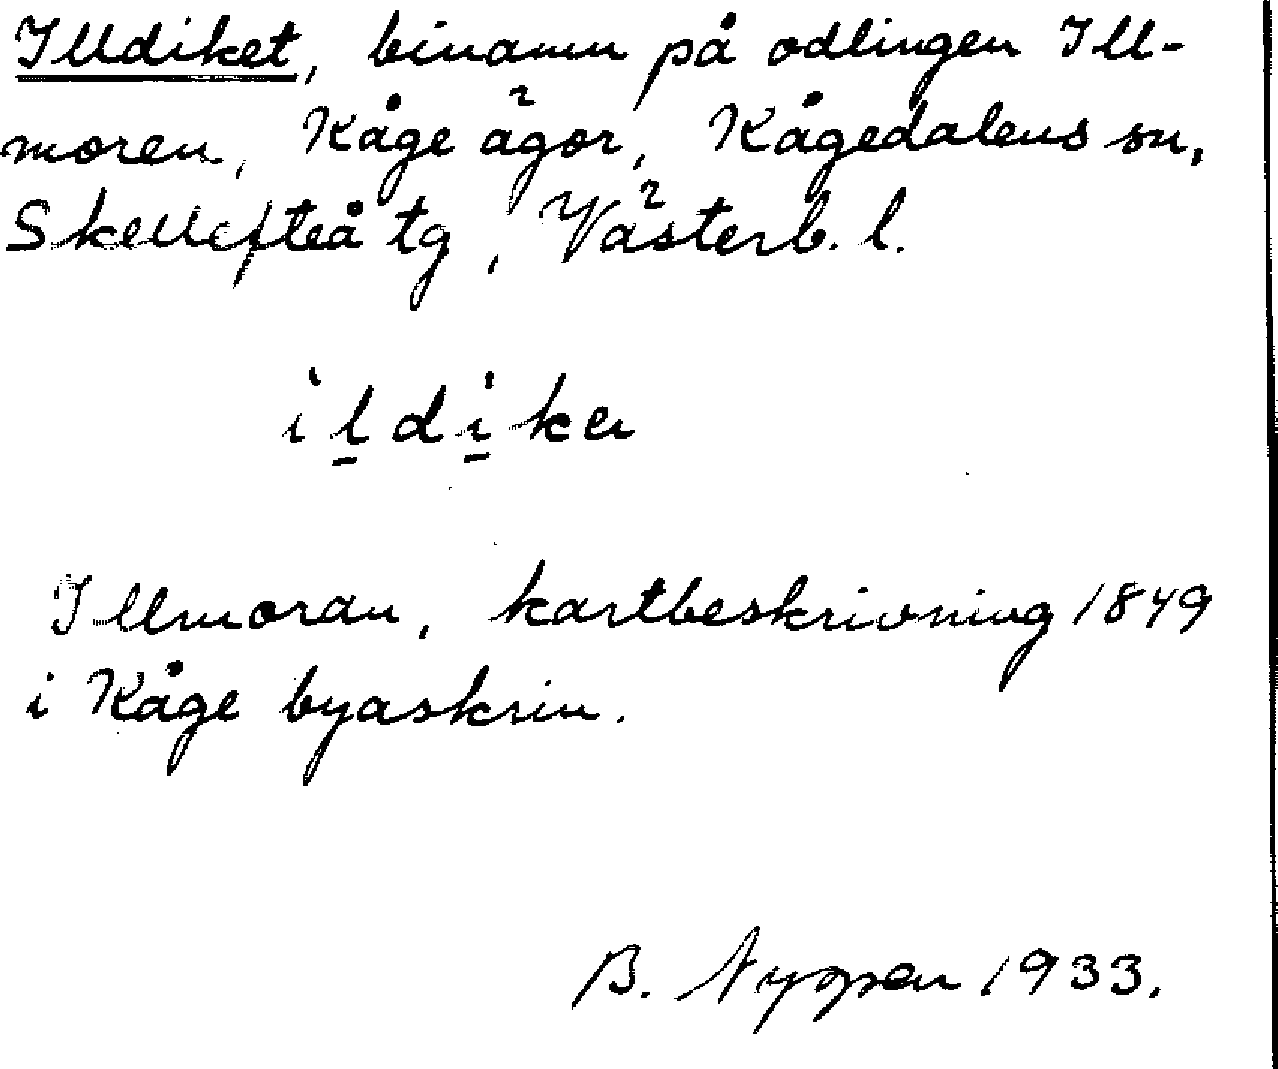 Illdiket, binamn på odlingen Ill-
moren, Kåge ägor, Kågedalens sn,
Skellefteå tg, Västerb. l.
i l̠ d i̠ k e
Illmoran, kartbeskrivning 1849
i Kåge byaskrin.
B. 1933.